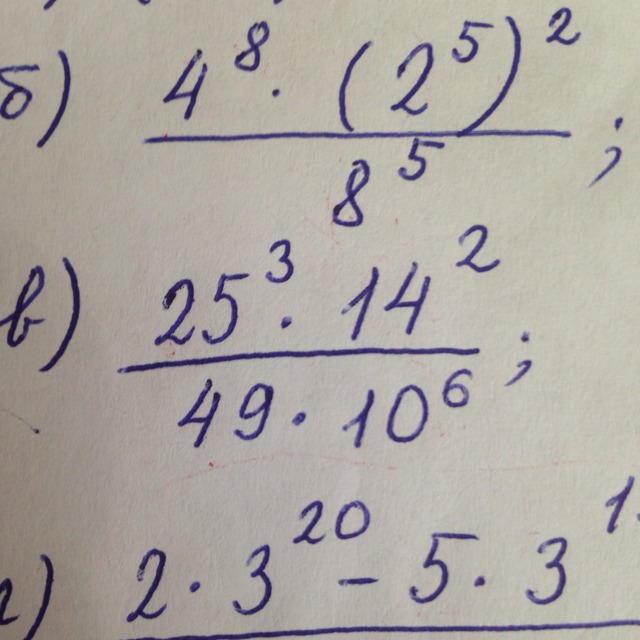 б) 4⁸ · (2⁵)²
8⁵ ;
в) 25³ · 14²
49 · 10⁶ ;
2 · 3²⁰ − 5 · 3¹